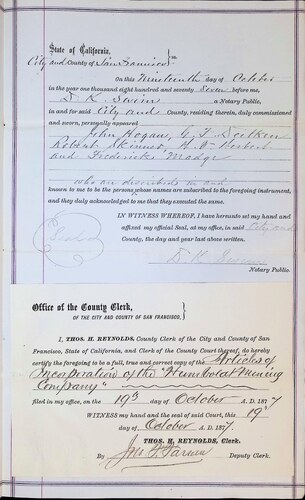 State of California,
City and County of San Francisco } ss.
On this Nineteenth day of October
in the year one thousand eight hundred and seventy Seven before me,
D. K. Swim a Notary Public,
in and for said City and County, residing therein, duly commissioned
and sworn, personally appeared
John Hogan, G. F.
Robert Skinner, H. Herbert
and Frederick Madge
who are described in and
known to me to be the persons whose names are subscribed to the foregoing instrument,
and they duly acknowledged to me that they executed the same.
IN WITNESS WHEREOF, I have hereunto set my hand and
affixed my official Seal, at my office, in said City and
County, the day and year last above written.
D. K. Swim
Notary Public.
Office of the County Clerk,
OF THE CITY AND COUNTY OF SAN FRANCISCO,
I, THOS. H. REYNOLDS, County Clerk of the City and County of San
Francisco, State of California, and Clerk of the County Court thereof, do hereby
certify the foregoing to be a full, true and correct copy of the Articles of
Incorporation of the "Humboldt Mining
Company"
filed in my office, on the 19th day of October A. D. 1877
WITNESS my hand and the seal of said Court, this 19th
day of October A. D. 1877.
THOS. H. REYNOLDS, Clerk.
By Deputy Clerk.